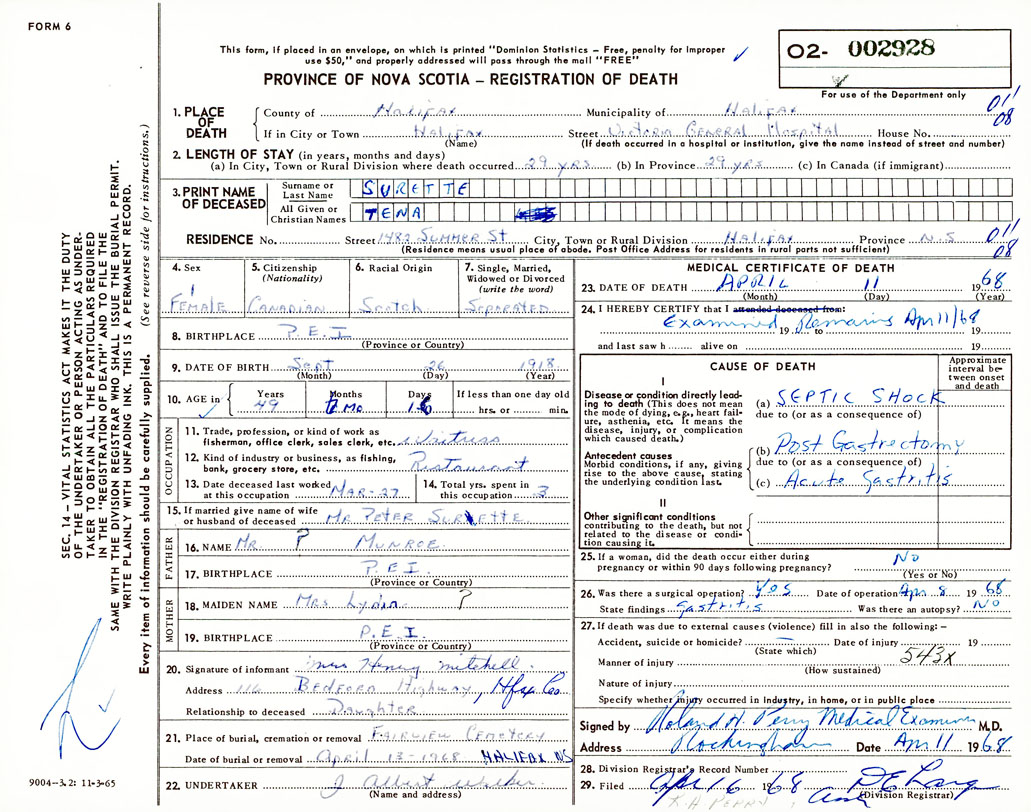 FORM 6
This form, if placed in an envelope, on which is printed "Dominion Statistics – Free, penalty for improper
use $50," and properly addressed will pass through the mail "FREE"
PROVINCE OF NOVA SCOTIA – REGISTRATION OF DEATH
02- 002928
For use of the Department only
011
08
1. PLACE OF DEATH
County of Halifax Municipality of Halifax
If in City or Town Halifax Street Victoria General Hospital House No.
(Name) (If death occurred in a hospital or institution, give the name instead of street and number)
2. LENGTH OF STAY (in years, months and days)
(a) In City, Town or Rural Division where death occurred 29 yrs (b) In Province 29 yrs (c) In Canada (if immigrant)
3. PRINT NAME OF DECEASED
Surname or Last Name SURETTE
All Given or Christian Names TENA
RESIDENCE No. Street 1483 Summer St City, Town or Rural Division Halifax Province N.S
(Residence means usual place of abode. Post Office Address for residents in rural parts not sufficient)
011
08
4. Sex
Female
5. Citizenship
(Nationality)
Canadian
6. Racial Origin
Scotch
7. Single, Married,
Widowed or Divorced
(write the word)
Separated
8. BIRTHPLACE P.E.I
(Province or Country)
9. DATE OF BIRTH Sept 26 1918
(Month) (Day) (Year)
10. AGE in Years Months Days If less than one day old
49 Mo. hrs. or min.
OCCUPATION
11. Trade, profession, or kind of work as
fisherman, office clerk, sales clerk, etc. Waitress
12. Kind of industry or business, as fishing,
bank, grocery store, etc. Restaurant
13. Date deceased last worked
at this occupation Mar-27
14. Total yrs. spent in
this occupation 3
15. If married give name of wife
or husband of deceased Mr Peter Surette
FATHER
16. NAME Mr. ? Munroe
17. BIRTHPLACE P.E.I
(Province or Country)
MOTHER
18. MAIDEN NAME Mrs Lydia ?
19. BIRTHPLACE P.E.I.
(Province or Country)
20. Signature of informant Mrs Henry Mitchell
Address 116 Bedford Highway, Hfx Co
Relationship to deceased Daughter
21. Place of burial, cremation or removal Fairview Cemetery
Date of burial or removal April 13-1968 HALIFAX NS
22. UNDERTAKER J Albert
(Name and address)
MEDICAL CERTIFICATE OF DEATH
23. DATE OF DEATH APRIL 11 1968
(Month) (Day) (Year)
24. I HEREBY CERTIFY that I attended deceased from:
Examined Remains Apr 11/68
19 to 19
and last saw h alive on 19
CAUSE OF DEATH
Approximate interval between onset and death
I
Disease or condition directly leading
to death (This does not mean
the mode of dying, e.g., heart failure,
asthenia, etc. It means the
disease, injury, or complication
which caused death.)
(a) SEPTIC SHOCK
due to (or as a consequence of)
Antecedent causes
Morbid conditions, if any, giving
rise to the above cause, stating
the underlying condition last.
(b) Post Gastrectomy
due to (or as a consequence of)
(c) Acute Gastritis
II
Other significant conditions
contributing to the death, but not
related to the disease or condition
causing it.
25. If a woman, did the death occur either during
pregnancy or within 90 days following pregnancy? No
(Yes or No)
26. Was there a surgical operation? Yes Date of operation Apr 8 1968
State findings Gastritis Was there an autopsy? No
27. If death was due to external causes (violence) fill in also the following: –
Accident, suicide or homicide? — Date of injury 19
(State which)
543X
Manner of injury
(How sustained)
Nature of injury
Specify whether injury occurred in industry, in home, or in public place
Signed by Roland H. Perry Medical Examiner M.D.
Address Rockingham Date Apr 11 1968
28. Division Registrar's Record Number
29. Filed Apr 16 1968
(Division Registrar)
R H PERRY
SEC. 14 – VITAL STATISTICS ACT MAKES IT THE DUTY
OF THE UNDERTAKER OR PERSON ACTING AS UNDERTAKER
TO OBTAIN ALL THE PARTICULARS REQUIRED
IN THE "REGISTRATION OF DEATH" AND TO FILE THE
SAME WITH THE DIVISION REGISTRAR WHO SHALL ISSUE THE BURIAL PERMIT.
WRITE PLAINLY WITH UNFADING INK. THIS IS A PERMANENT RECORD.
Every item of information should be carefully supplied. (See reverse side for instructions.)
9004-3.2: 11-3-65